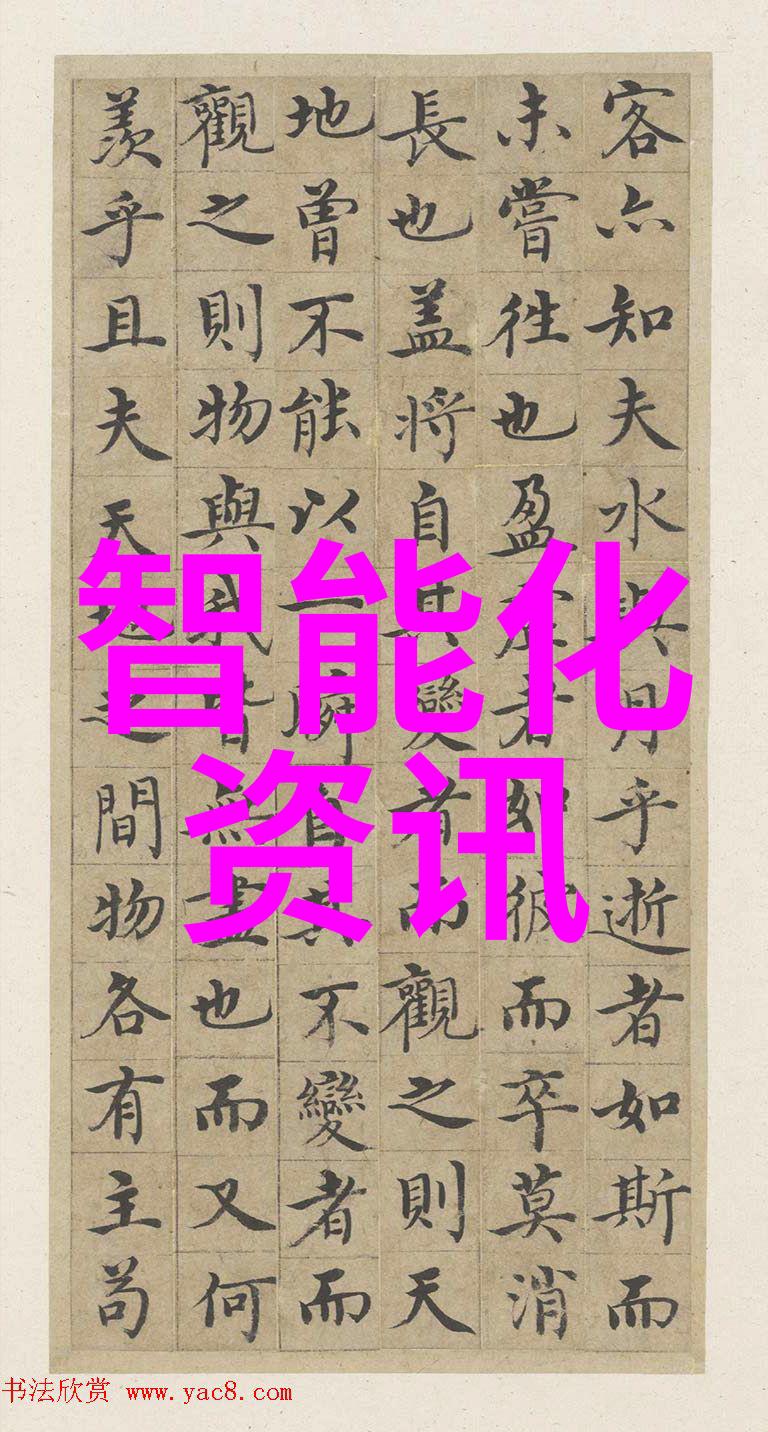 客亦知夫水與月乎逝者如斯而
未嘗往也盈虛者如彼而卒莫消
長也盖將自其變者而觀之則天
地曾不能以一瞬自其不變者而
觀之則物與我皆無盡也而又何
羨乎且夫天地之間物各有主苟
智能化
资讯
书法欣赏 www.yac8.com